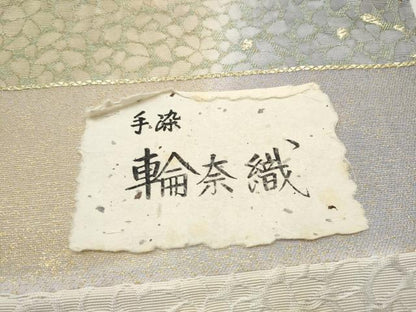 手染
輪奈織